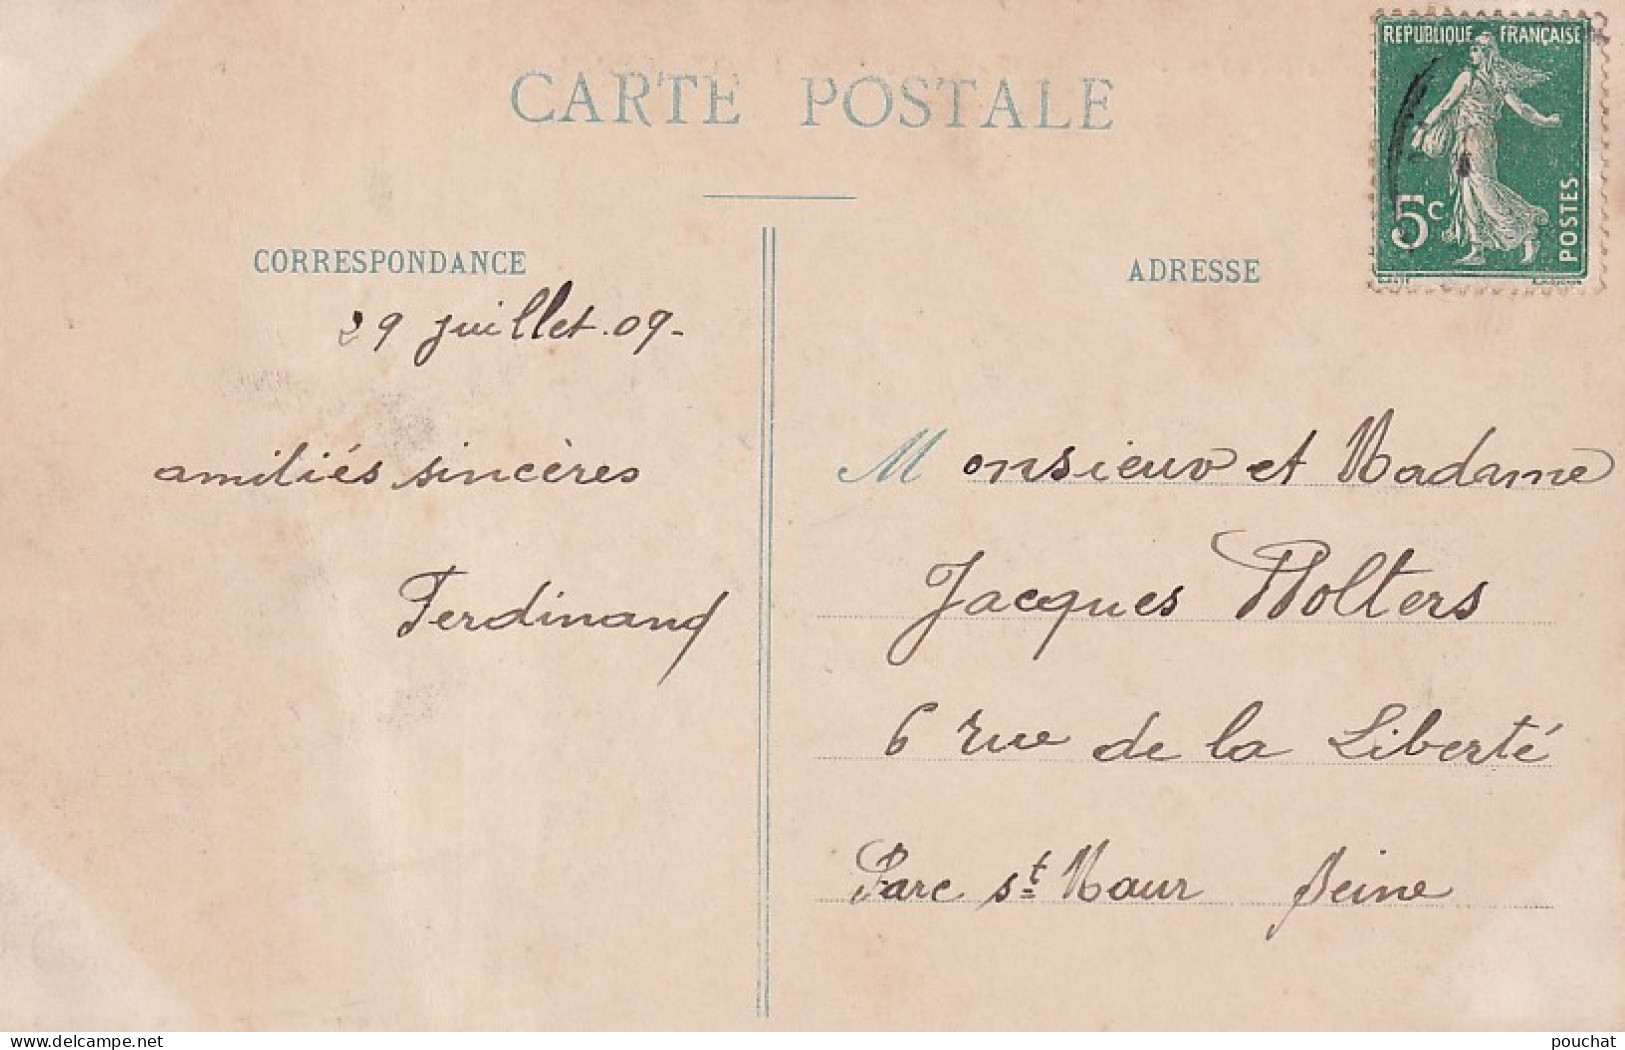 CARTE POSTALE
REPUBLIQUE FRANÇAISE
5c
POSTES
CORRESPONDANCE
ADRESSE
29 juillet. 09-
amitiés sincères
Ferdinand
Monsieur et Madame
Jacques Wolters
6 rue de la Liberté
Parc St Maur Seine
www.delcampe.net
pouchat